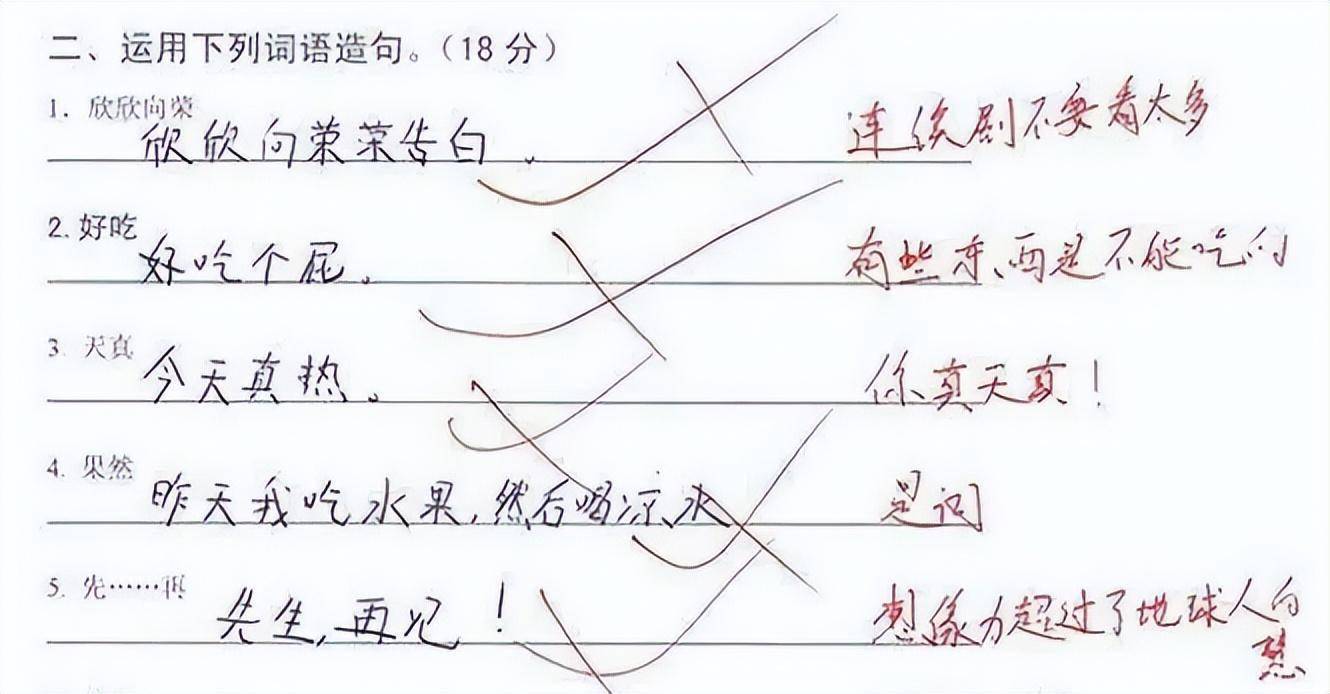 二、运用下列词语造句。（18 分）
1. 欣欣向荣
欣欣向荣荣告白。
连续剧不要看太多
2. 好吃
好吃个屁。
有些东西是不能吃的
3. 天真
今天真热。
你真天真！
4. 果然
昨天我吃水果，然后喝凉水
是词
5. 先……再
先生，再见！
想像力超过了地球人的